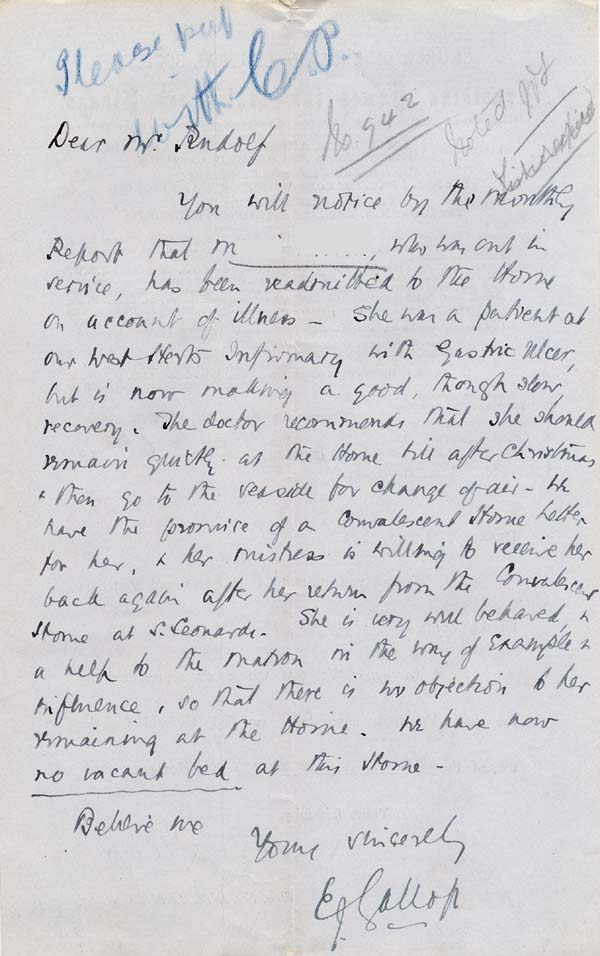 Please put
with C.P.
No 942
Noted
Dear Mr. Rudolf
You will notice by the Monthly
Report that M . . . . . . , who was out in
service, has been readmitted to the Home
on account of illness – She was a patient at
our West Herts Infirmary with Gastric Ulcer,
but is now making a good, though slow
recovery. The doctor recommends that she should
remain quietly at the Home till after Christmas
& then go to the seaside for change of air – We
have the promise of a Convalescent Home Letter
for her, & her mistress is willing to receive her
back again after her return from the Convalescent
Home at S. Leonards. She is very well behaved, &
a help to the Matron in the way of Example &
influence, so that there is no objection to her
remaining at the Home. We have now
no vacant bed at this Home –
Believe me
Yours sincerely
E J Gallop